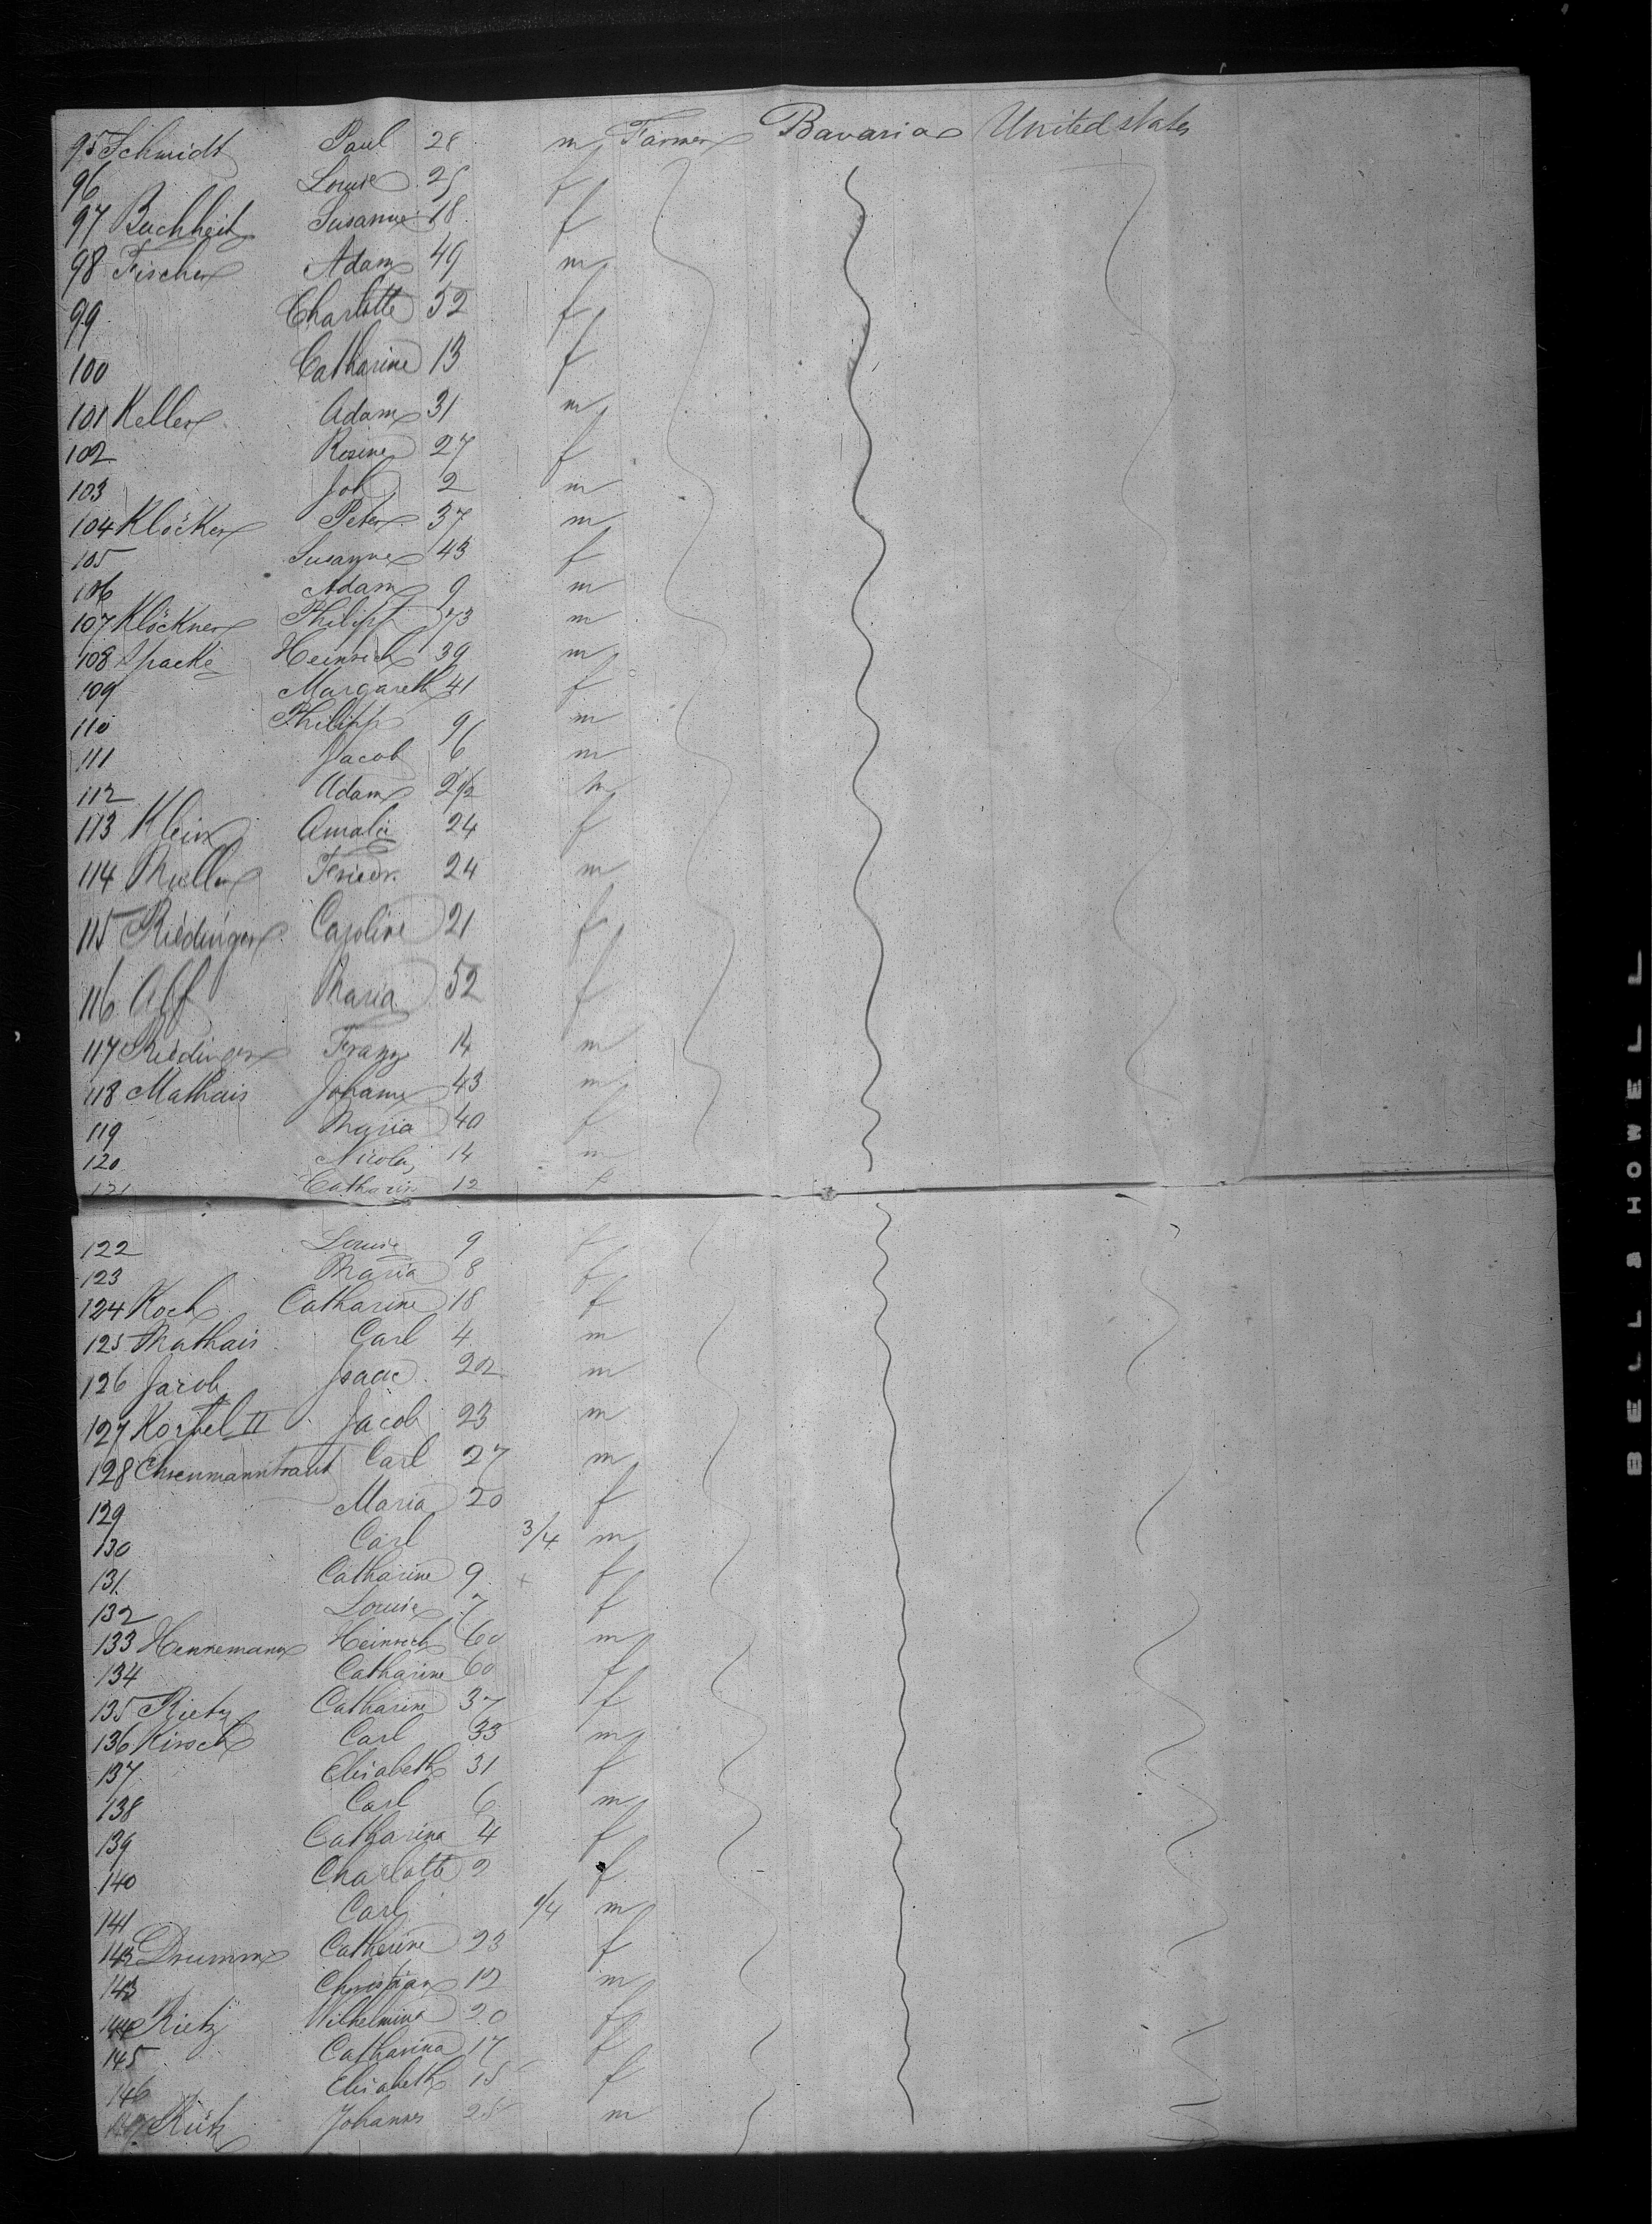 95 Schmidt Paul 28 m Farmer Bavaria United states
96 Louise 25 f
97 Buchheit Susanne 18 f
98 Fischer Adam 49 m
99 Charlotte 52 f
100 Catharine 13 f
101 Keller Adam 31 m
102 Rosine 27 f
103 Joh 2 m
104 Klöcker Peter 37 m
105 Susanne 43 f
106 Adam 9 m
107 Klöckner Philipp 73 m
108 Spacke Heinrich 39 m
109 Margareth 41 f
110 Philipp 9 m
111 Jacob 6 m
112 Adam 2 1/2 m
113 Klein Amalie 24 f
114 Müller Friedr. 24 m
115 Riedinger Caroline 21 f
116 Aff Maria 52 f
117 Riedinger Franz 14 m
118 Mathais Johann 43 m
119 Maria 40 f
120 Nicolas 14 m
121 Catharin 12 f
122 Louise 9 f
123 Maria 8 f
124 Koch Catharine 18 f
125 Mathais Carl 4 m
126 Jacob Isaac 22 m
127 II Jacob 23 m
128 Ehrenmanntraut Carl 27 m
129 Maria 20 f
130 Carl 3/4 m
131 Catharine 9 f
132 Louise 7 f
133 Hennemann Heinrich 60 m
134 Catharine 60 f
135 Rietz Catharine 37 f
136 Kirsch Carl 33 m
137 Elisabeth 31 f
138 Carl 6 m
139 Catharina 4 f
140 Charlotte 2 f
141 Carl 1/4 m
142 Drumm Catherine 23 f
143 Christian 12 m
144 Rietz Wilhelmina 20 f
145 Catharina 17 f
146 Elisabeth 15 f
147 Johannes 25 m
BELL & HOWELL